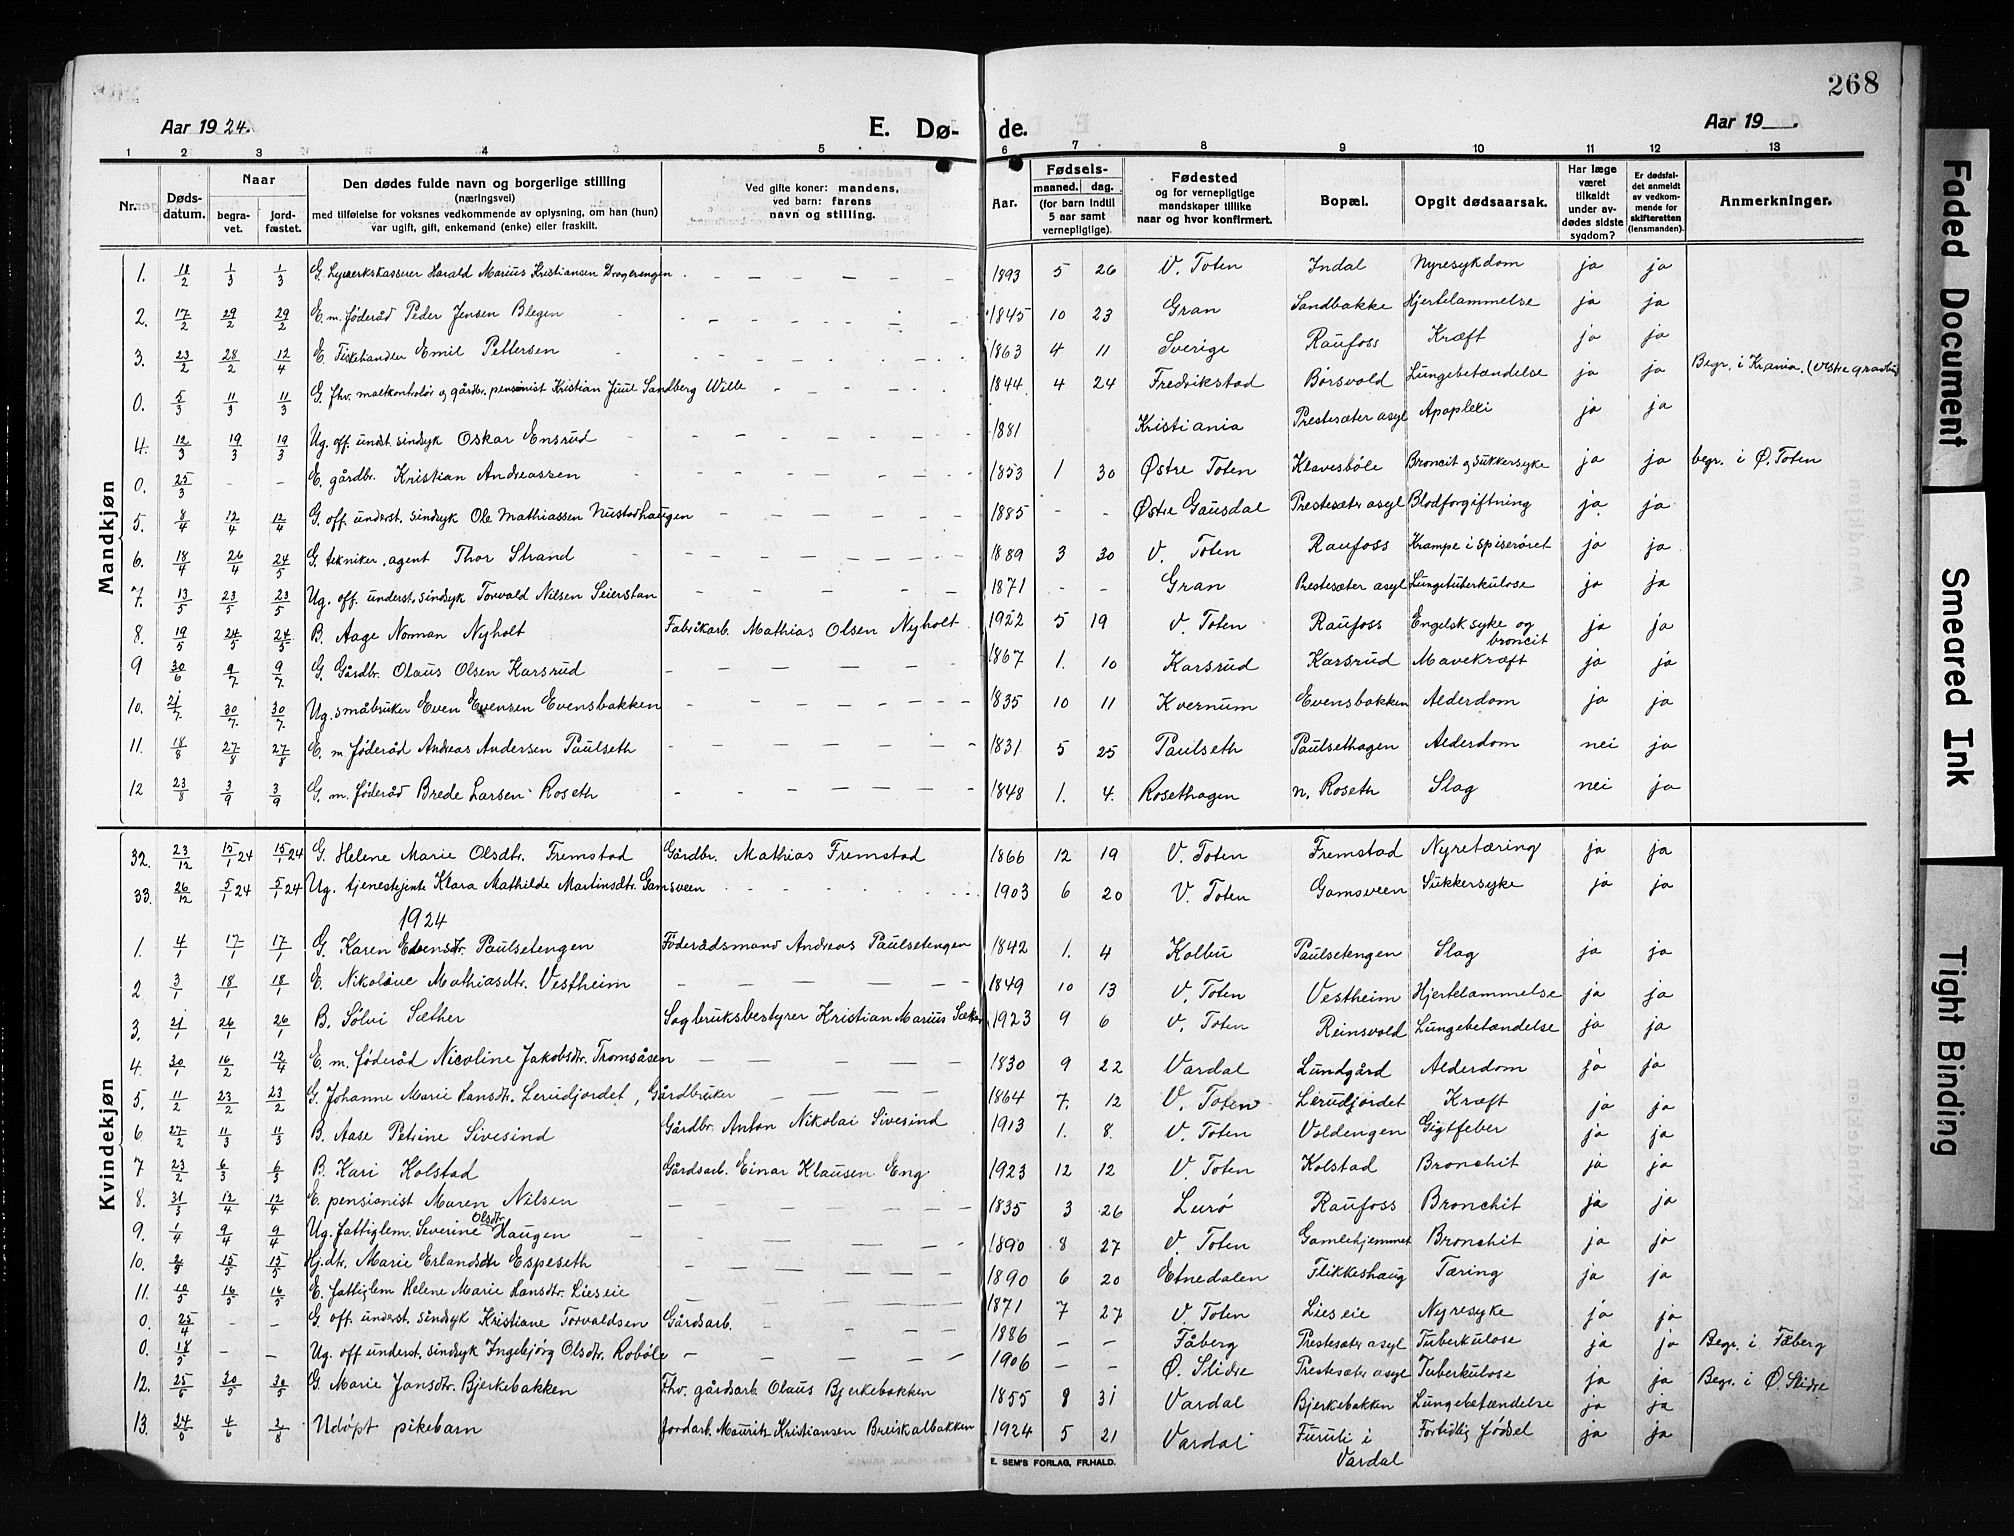 268
Aar 1924.
E. Dø-
de.
Aar 19 .
1 2 3 4 5 6 7 8 9 10 11 12 13
Nr.
Døds-
datum.
Naar
begra-
vet.
jord-
fæstet.
Den dødes fulde navn og borgerlige stilling
(næringsvei)
med tilføielse for voksnes vedkommende av oplysning, om han (hun)
var ugift, gift, enkemand (enke) eller fraskilt.
Ved gifte koner: mandens,
ved barn: farens
navn og stilling.
Aar.
Fødsels-
maaned. dag.
(for barn indtil
5 aar samt
vernepligtige).
Fødested
og for vernepligtige
mandskaper tillike
naar og hvor konfirmert.
Bopæl.
Opgit dødsaarsak.
Har læge
været
tilkaldt
under av-
dødes sidste
sygdom?
Er dødsfal-
det anmeldt
av vedkom-
mende for
skifteretten
(lensmanden).
Anmerkninger.
Mandkjøn
1. 18/2 1/3 1/3 G. Lysverkskasserer Harald Marius Kristiansen Drogerengen 1893 5 26 V. Toten Indal Nyresykdom ja ja
2. 17/2 29/2 29/2 E. m. føderåd Peder Jensen Blegen 1845 10 23 Gran Sandbakke Hjertelammelse ja ja
3. 23/2 28/2 12/4 E. Fiskehandler Emil Pettersen 1863 4 11 Sverige Raufoss Kræft ja ja
0. 5/3 11/3 11/3 G. fhv. maltkontrolør og gårdbr. pensionist Kristian Juul Sandberg Wille 1844 4 24 Fredrikstad Børsvold Lungebetændelse ja ja Begr. i Krania. (Vestre gravlund)
4. 12/3 19/3 19/3 Ug. off. undst. sindsyk Oskar Ensrud 1881 Kristiania Prestesæter asyl Apoplexi ja ja
0. 25/3 - - E. gårdbr. Kristian Andreassen 1853 1 30 Østre Toten Klavesbøle Broncit og Sukkersyke ja ja begr. i Ø. Toten
5. 8/4 12/4 12/4 G. off. underst. sindsyk Ole Mathiassen Nustadhaugen 1885 - - Østre Gausdal Prestesæter asyl Blodforgiftning ja ja
6. 18/4 26/4 24/5 G. tekniker, agent Thor Strand 1889 3 30 V. Toten Raufoss Krampe i spiserøret ja ja
7. 13/5 23/5 23/5 Ug. off. underst. sindsyk Torvald Nilsen Seierstan 1871 - - Gran Prestesæter asyl Lungetuberkulose ja ja
8. 19/5 24/5 24/5 B. Aage Norman Nyholt Fabrikarb. Mathias Olsen Nyholt 1922 5 19 V. Toten Raufoss Engelsk syke og broncit ja ja
9 30/6 9/7 9/7 G. Gårdbr. Olaus Olsen Karsrud 1867 1. 10 Karsrud Karsrud Mavekræft ja ja
10. 21/7 30/7 30/7 Ug. småbruker Even Evensen Evensbakken 1835 10 11 Kvernum Evensbakken Alderdom ja ja
11. 18/8 27/8 27/8 E. m. føderåd Andreas Andersen Paulseth 1831 5 25 Paulseth Paulsethagen Alderdom nei ja
12 23/8 3/9 3/9 G. m. føderåd Brede Larsen Roseth 1848 1. 4. Rosethagen n. Roseth Slag nei ja
Kvindekjøn
32. 23/12 15/1 24 15/1 24 G. Helene Marie Olsdtr. Fremstad Gårdbr. Mathias Fremstad 1866 12 19 V. Toten Fremstad Nyretæring ja ja
33. 26/12 5/1 24 5/1 24 Ug. tjenestejente Klara Mathilde Martinsdtr. Gamsveen 1903 6 20 V. Toten Gamsveen Sukkersyke ja ja
1924
1. 4/1 17/1 17/1 G. Karen Evensdtr. Paulsetengen Føderådsmand Andreas Paulsetengen 1842 1. 4 Kolbu Paulsetengen Slag ja ja
2 3/1 18/1 18/1 E. Nikoline Mathiasdtr. Vestheim 1849 10 13 V. Toten Vestheim Hjertelammelse ja ja
3. 21/1 26/1 26/1 B. Sølvi Sæther Sagbruksbestyrer Kristian Marius Sæther 1923 9 6 V. Toten Reinsvold Lungebetændelse ja ja
4. 30/1 16/2 12/4 E. m. føderåd Nicoline Jakobsdtr. Tromsåsen 1830 9 22 Vardal Lundgård Alderdom ja ja
5. 11/2 23/2 23/2 G. Johanne Marie Hansdtr. Lerudjordet, Gårdbruker 1864 7. 12 V. Toten Lerudjordet Kræft ja ja
6 27/2 11/3 11/3 B. Aase Petrine Sivesind Gårdbr. Anton Nikolai Sivesind 1913 1. 8. V. Toten Voldengen Gigtfeber ja ja
7 23/2 6/3 6/3 B. Kari Kolstad Gårdsarb. Einar Klausen Eng 1923 12 12 V. Toten Kolstad Bronchit ja ja
8. 31/3 12/4 12/4 E. pensionist Maren Nilsen 1835 3 26 Lurø Raufoss Bronchit ja ja
9. 1/4 9/4 9/4 Ug. fattiglem. Severine Olsdtr. Haugen 1890 8 27 V. Toten Gamlehjemmet Bronchit ja ja
10. 2/5 15/5 15/5 Hj.dtr. Marie Erlandsdtr. Espeseth 1890 6 20 Etnedalen Flikkeshaug Tæring ja ja
11. 10/5 16/5 16/5 E. fattiglem Helene Marie Hansdtr. Lieseie 1871 7 27 V. Toten Lieseie Nyresyke ja ja
0. 25/4 - - G. off. underst. sindsyk Kristiane Torvaldsen Gårdsarb. 1886 - - Fåberg Prestesæter asyl Tuberkulose ja ja Begr. i Fåberg
0. 18/5 - - Ug. off underst. sindsyk Ingebjørg Olsdtr. Robøle 1906 - - Ø. Slidre Prestesæter asyl Tuberkulose ja ja Begr. i Ø. Slidre
12. 25/5 30/5 30/5 G. Marie Jansdtr. Bjerkebakken Fhv. gårdsarb. Olaus Bjerkebakken 1855 8 31 Vardal Bjerkebakken Lungebetændelse ja ja
13. 24/5 4/6 3/8 Udøpt pikebarn Jordarb. Mauritz Kristiansen Bruskalbakken 1924 5 21 Vardal Furuli i Vardal Fortidlig fødsel ja ja
E. SEM'S FORLAG, FR.HALD.
Faded Document
Smeared Ink
Tight Binding